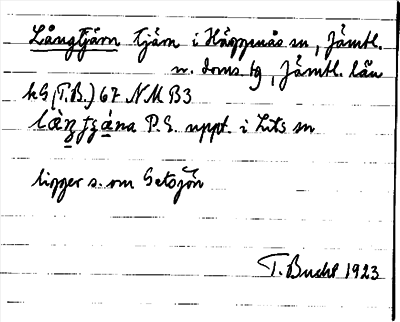 Långtjärn tjärn i Häggenås sn, Jämtl.
n. doms. tg, Jämtl. län
kG (T.B.) 67 N M B3
P.E. uppt. i Lits sn
ligger s. om Getsjön
T. Bucht 1923